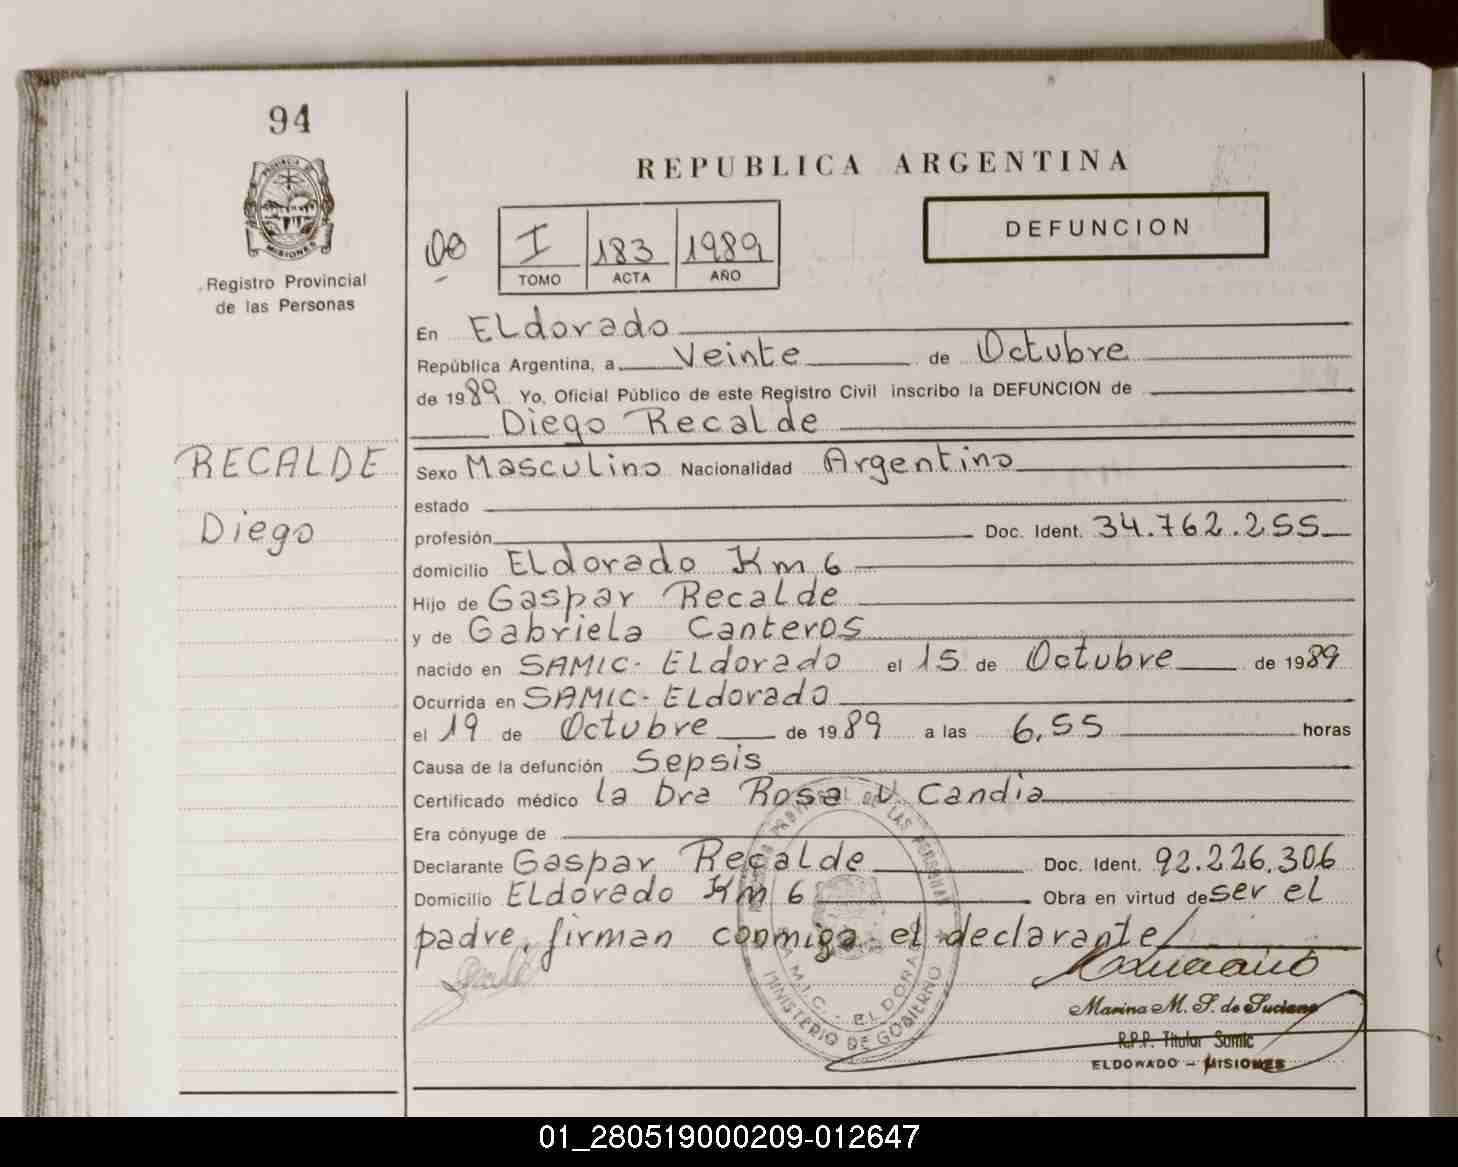 94
REPUBLICA ARGENTINA
PROVINCIA DE
MISIONES
Registro Provincial
de las Personas
DEFUNCION
I 183 1989
TOMO ACTA AÑO
En ELdorado
República Argentina, a Veinte de Octubre
de 1989 Yo, Oficial Público de este Registro Civil inscribo la DEFUNCION de
Diego Recalde
RECALDE
Diego
Sexo Masculino Nacionalidad Argentino
estado
profesión Doc. Ident. 34.762.255
domicilio ELdorado Km 6
Hijo de Gaspar Recalde
y de Gabriela Canteros
nacido en SAMIC- ELdorado el 15 de Octubre de 1989
Ocurrida en SAMIC- ELdorado
el 19 de Octubre de 1989 a las 6,55 horas
Causa de la defunción Sepsis
Certificado médico la Dra Rosa V. Candia
Era cónyuge de
Declarante Gaspar Recalde Doc. Ident. 92.226.306
Domicilio ELdorado Km 6 Obra en virtud de ser el
padre, firman conmigo el declarante
DE LAS PERSONAS
ELDORADO
MINISTERIO DE GOBIERNO
Marina M. S. de Luciano
R.P.P. Titular Samic
ELDORADO - MISIONES
01_280519000209-012647